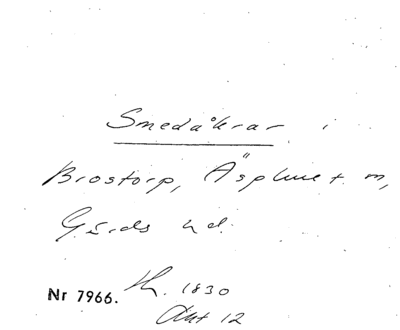 Smedåkrar i
Brostorp, Äsphult m,
Gärds hd.
Nr 7966. Th. 1830
Akt 12